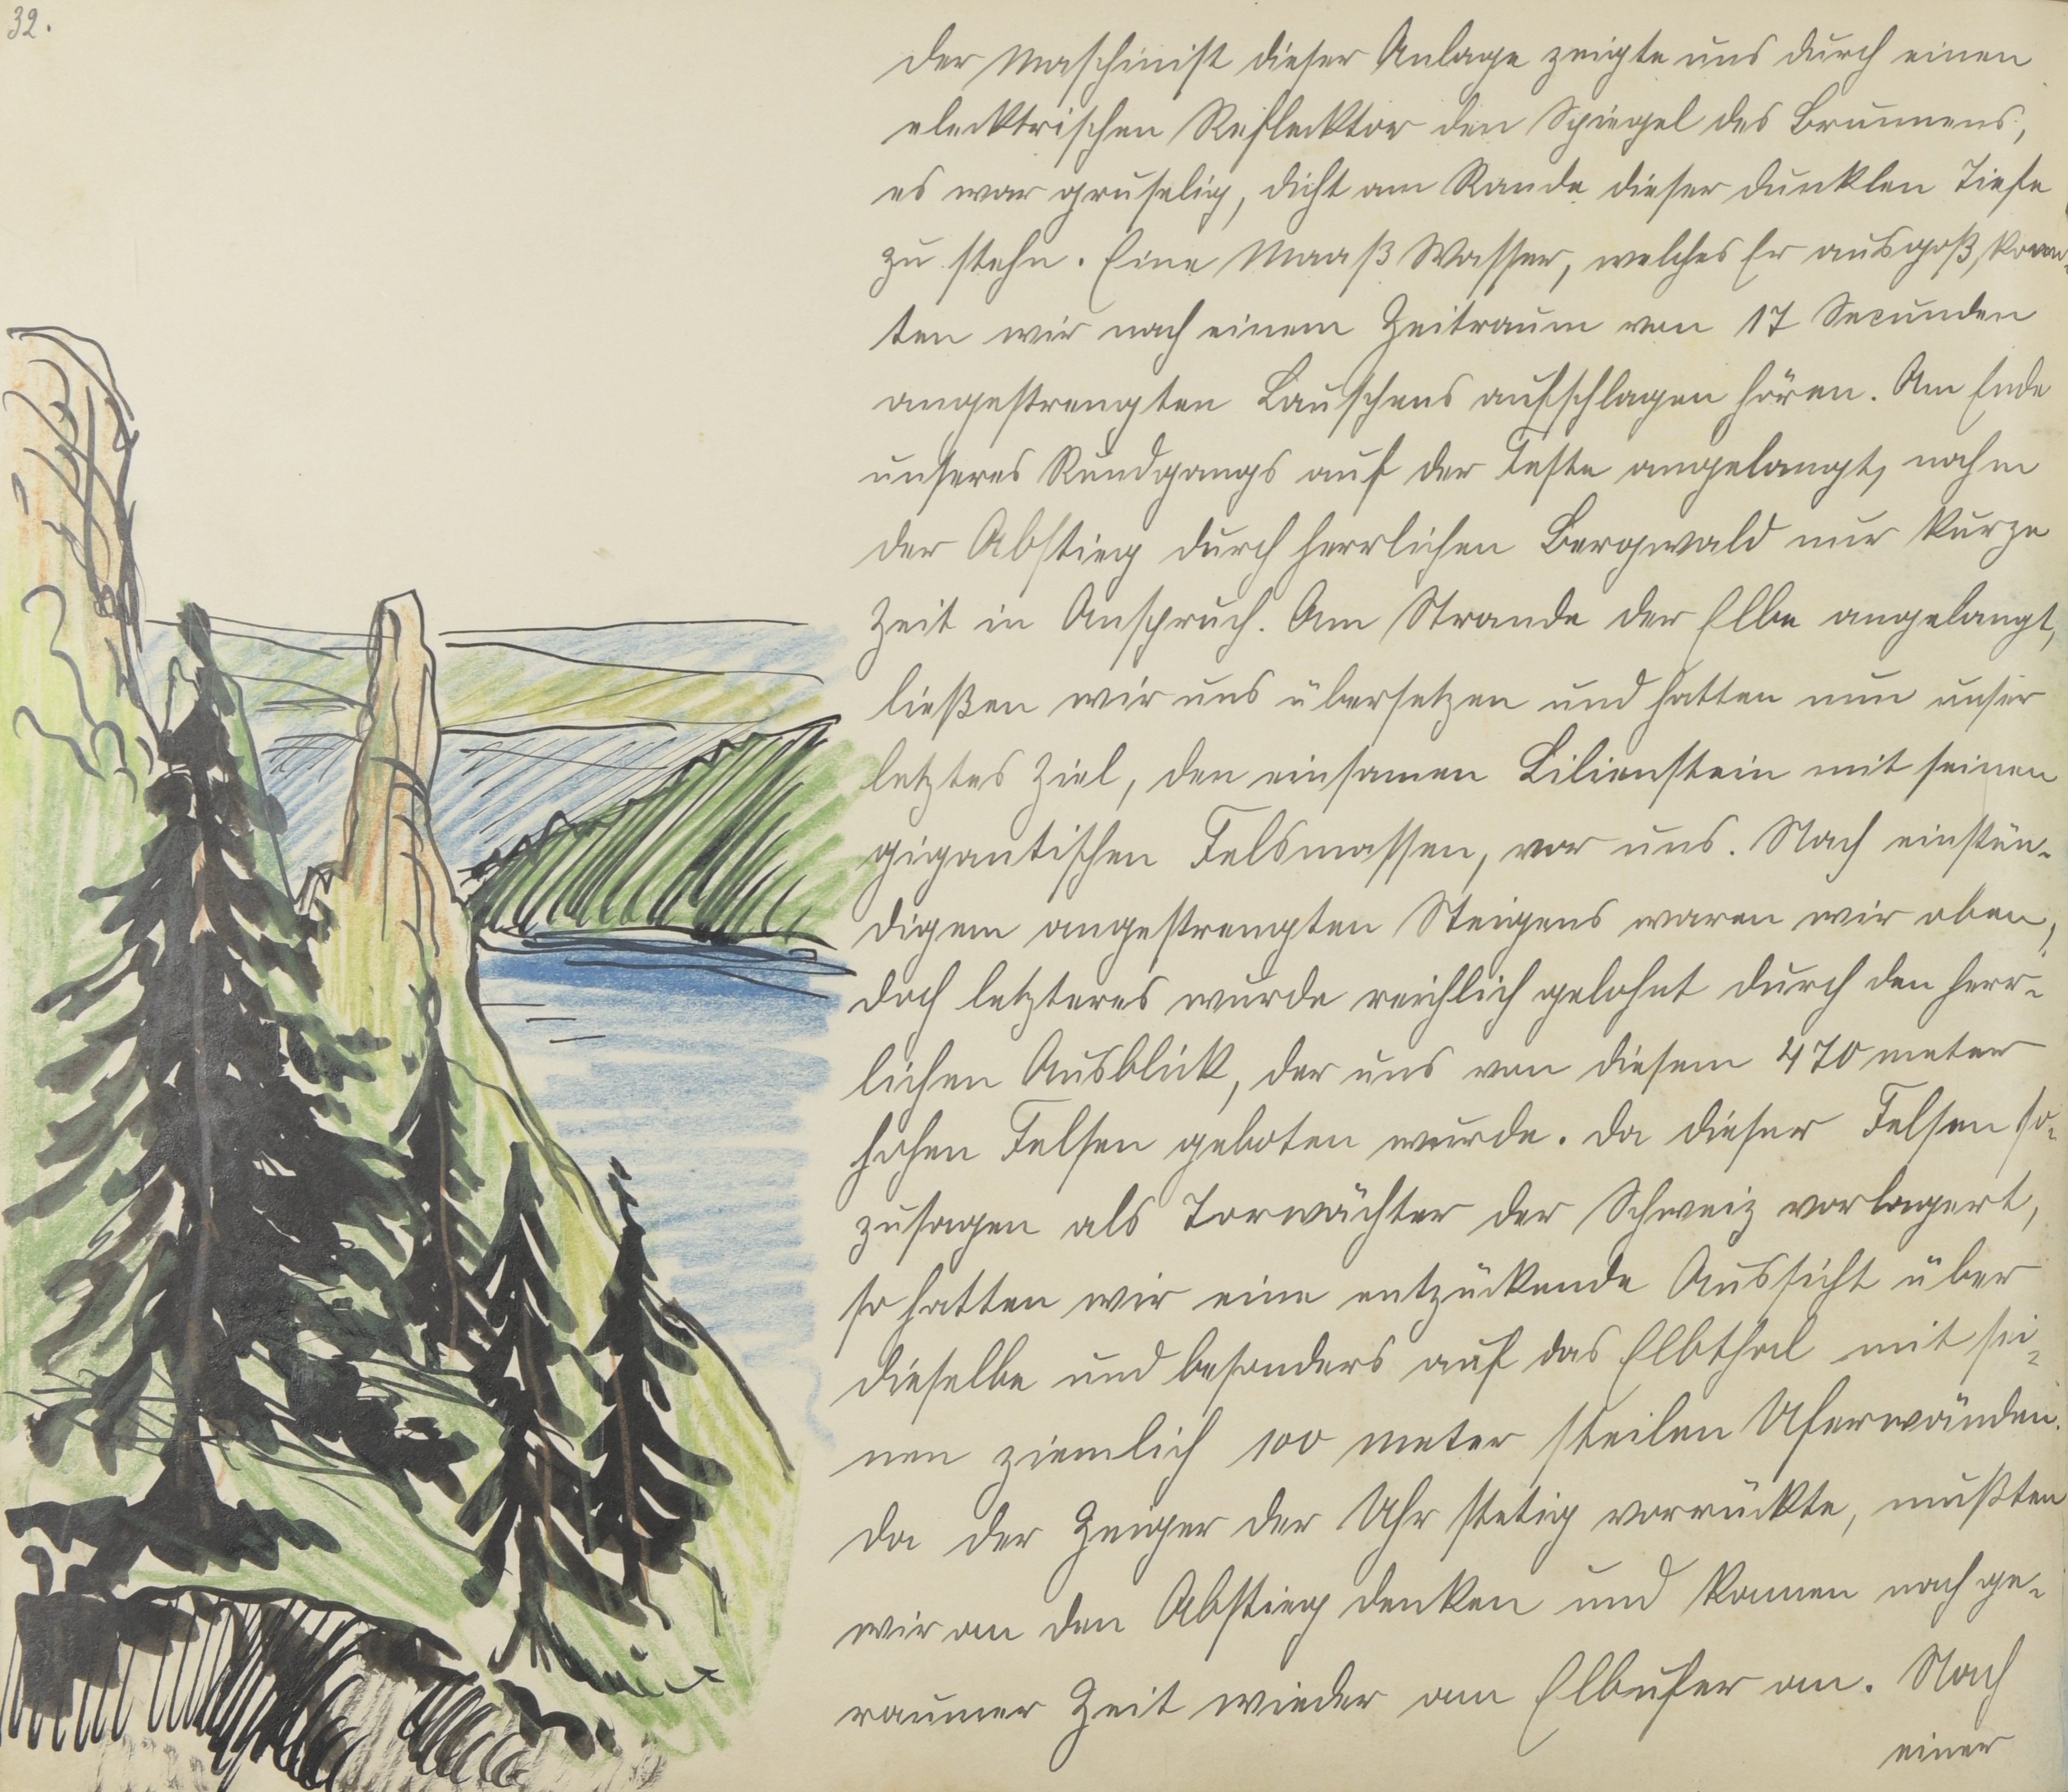 32.
der Maschinist dieser Anlage zeigte uns durch einen
elecktrischen Reflecktor den Spiegel des Brunnens,
es war gruselig, dicht am Rande dieser dunklen Tiefe
zu stehn. Eine Maaß Wasser, welches Er ausgoß, konn-
ten wir nach einem Zeitraum von 17 Secunden
angestrengten Lauschens aufschlagen hören. Am Ende
unseres Rundgangs auf der Feste angelangt, nahm
der Abstieg durch herrlichen Bergwald nur kurze
Zeit in Anspruch. Am Strande der Elbe angelangt,
ließen wir uns übersetzen und hatten nun unser
letztes Ziel, den einsamen Lilienstein mit seinen
gigantischen Felsmassen, vor uns. Nach einstün-
digem angestrengten Steigens waren wir oben,
doch letzteres wurde reichlich gelohnt durch den herr-
lichen Ausblick, der uns von diesem 470 meter
hohen Felsen geboten wurde. Da dieser Felsen so-
zusagen als Torwächter der Schweiz vorlagert,
so hatten wir eine entzückende Aussicht über
dieselbe und besonders auf das Elbthal mit sei-
nen ziemlich 100 meter steilen Uferwänden.
Da der Zeiger der Uhr stetig vorrückte, mußten
wir an den Abstieg denken und kamen nach ge-
raumer Zeit wieder am Elbufer an. Nach
einer